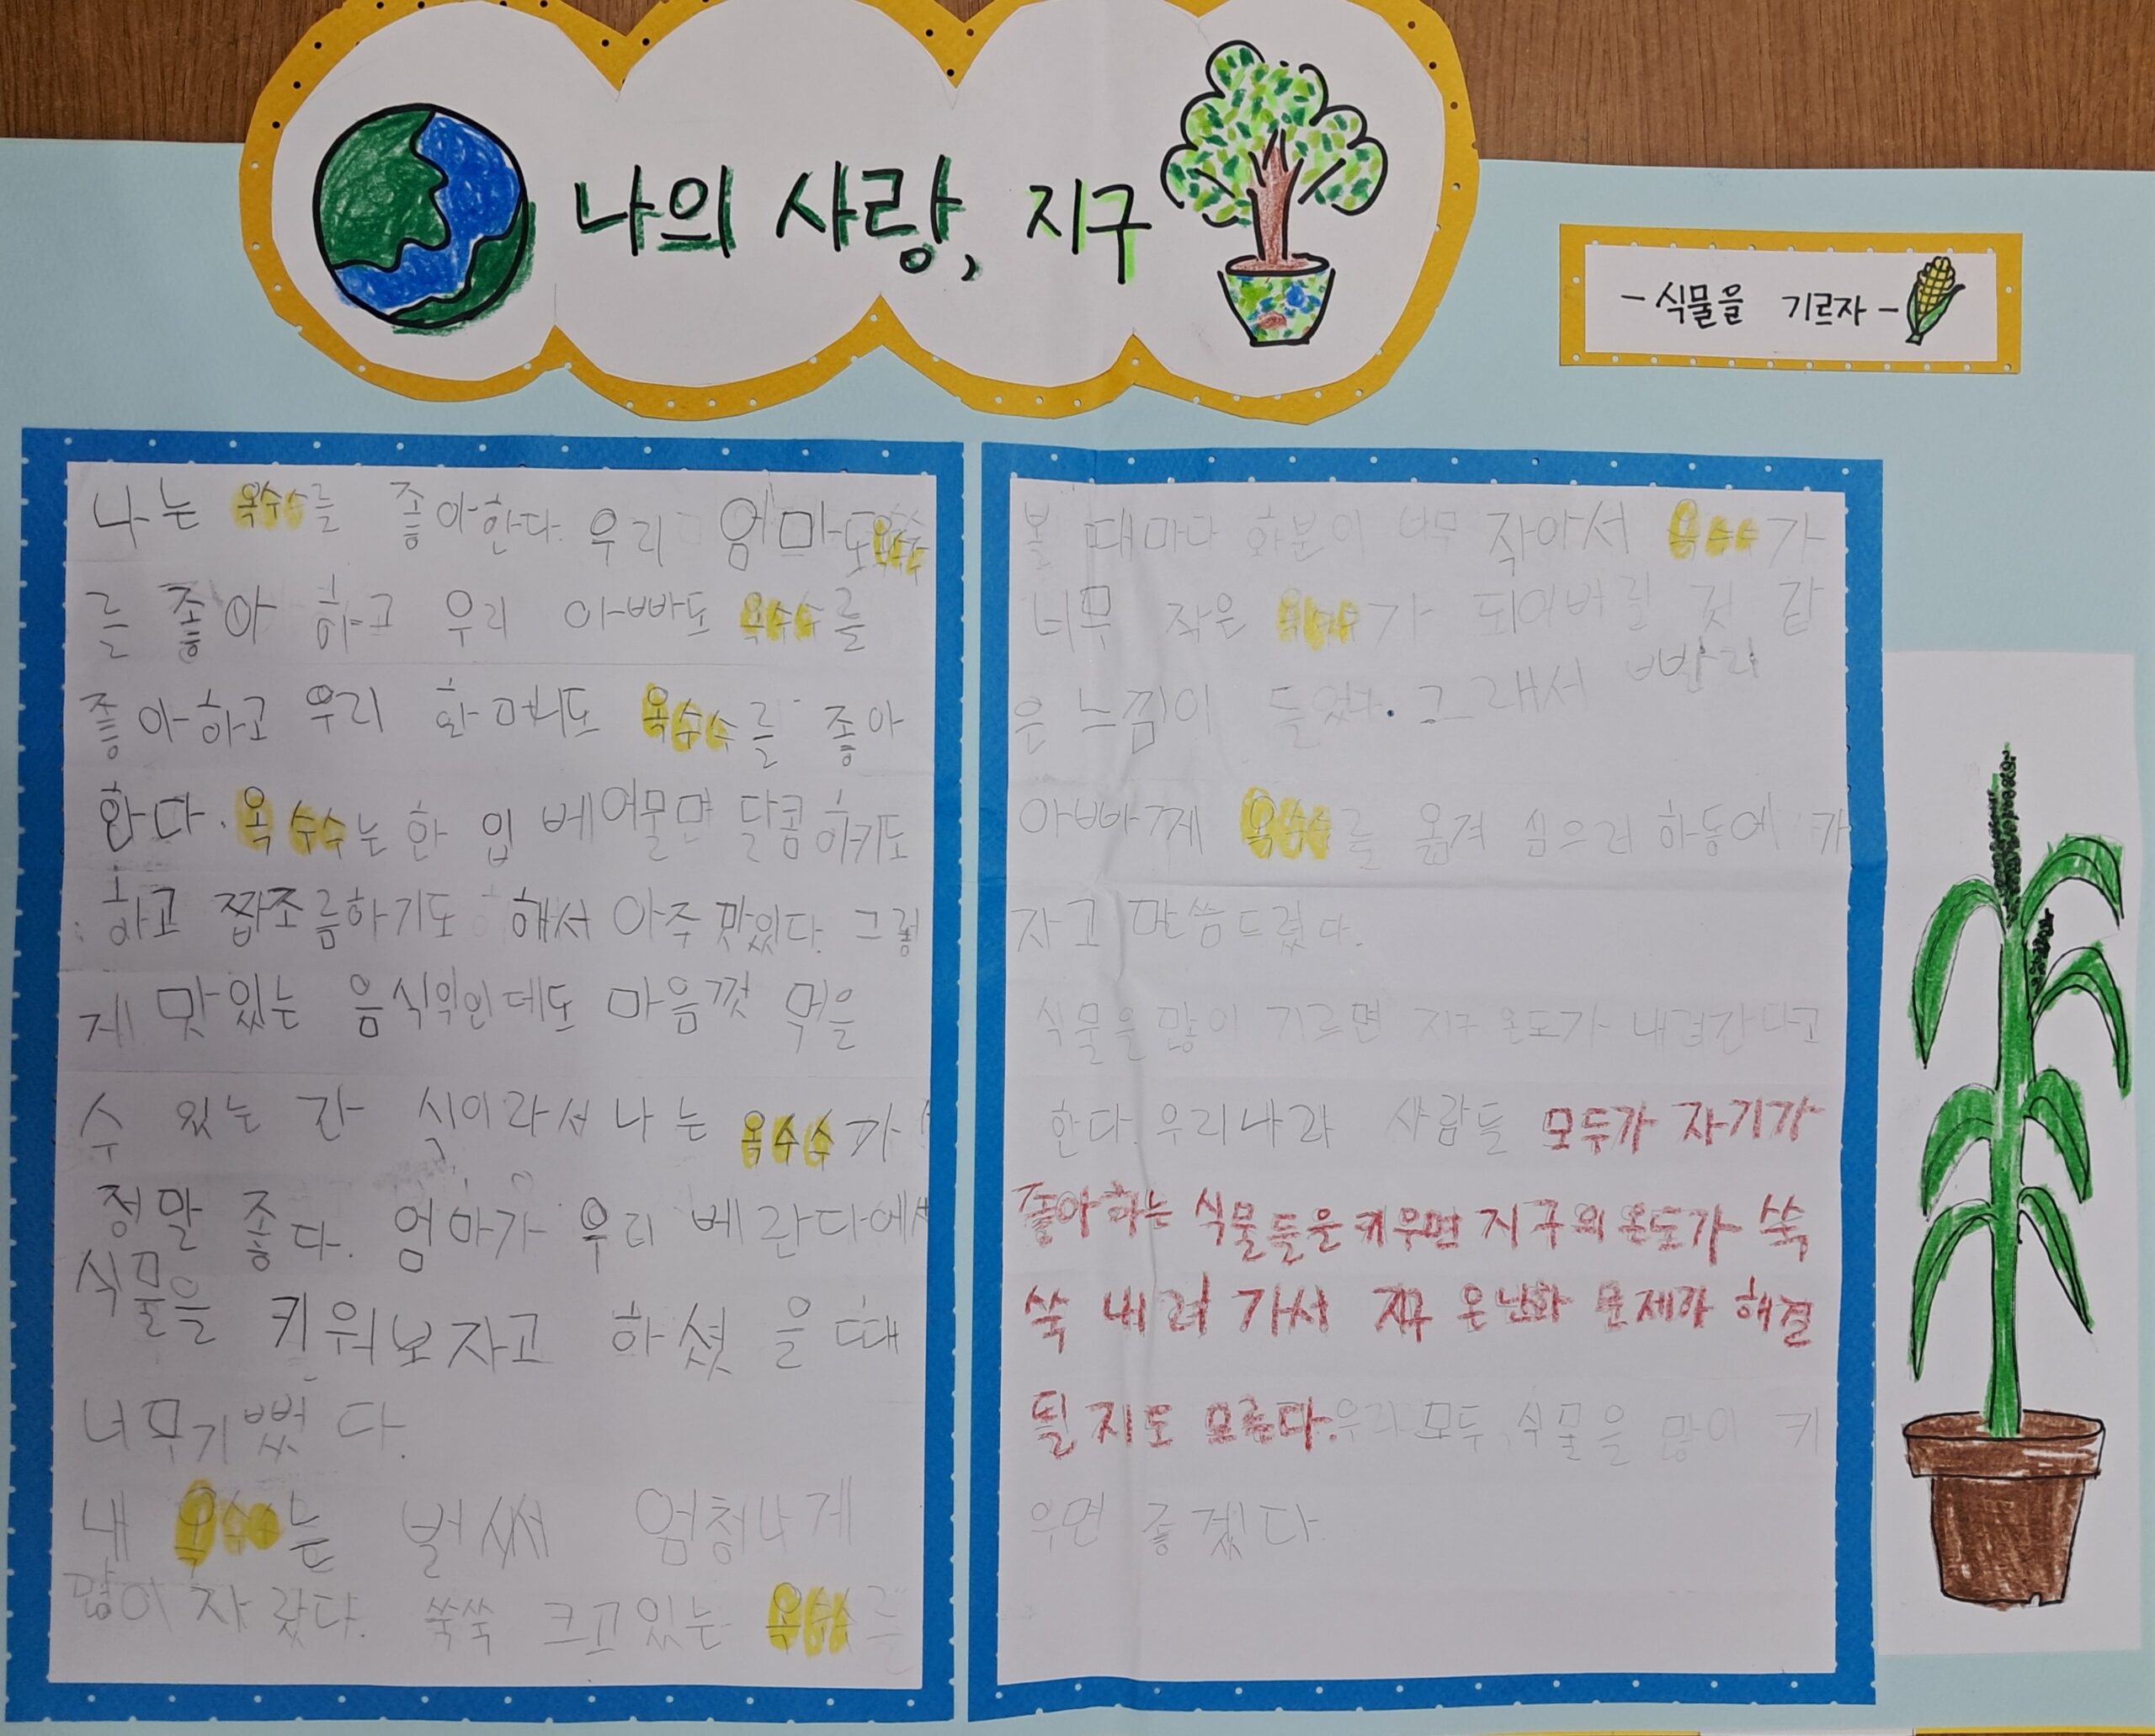 나의 사랑, 지구
- 식물을 기르자 -
나는 옥수수를 좋아한다. 우리 엄마도 옥수수
를 좋아 하고 우리 아빠도 옥수수를
좋아하고 우리 할머니도 옥수수를 좋아
한다. 옥수수는 한 입 베어물면 달콤하기도
하고 짭조름하기도 해서 아주 맛있다. 그렇
게 맛있는 음식인데도 마음껏 먹을
수 있는 간 식이라서 나는 옥수수가
정말 좋다. 엄마가 우리 베란다에서
식물을 키워보자고 하셨을 때
너무기뻤다.
내 옥수수는 벌써 엄청나게
많이 자랐다. 쑥쑥 크고있는 옥수수를
볼 때마다 화분이 너무 작아서 옥수수가
너무 작은 옥수수가 되어버릴 것 같
은 느낌이 들었다. 그래서 빨리
아빠께 옥수수를 옮겨 심으러 하동에 가
자고 말씀드렸다.
식물을 많이 기르면 지구 온도가 내려간다고
한다. 우리나라 사람들 모두가 자기가
좋아하는 식물들을 키우면 지구의 온도가 쑥
쑥 내려 가서 지구 온난화 문제가 해결
될지도 모른다. 우리 모두 식물을 많이 키
우면 좋겠다.